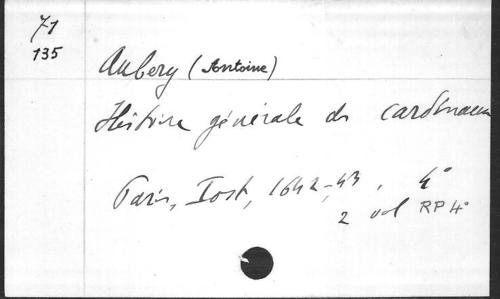 71
135
Aubery (Antoine)
Histoire générale des cardinaux
Paris, Jost, 1642-43, 4°
2 vol RP 4°